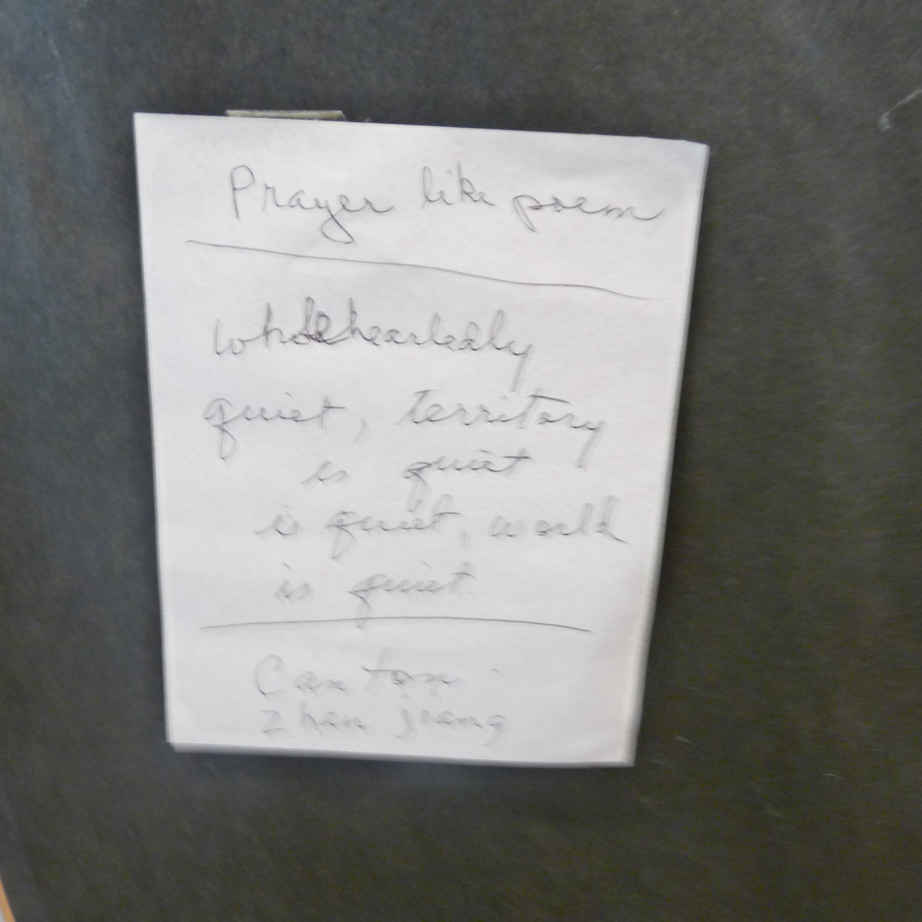 Prayer like poem
wholeheartedly
quiet, territory
is quiet
is quiet, world
is quiet
Canton
Zhan jiang